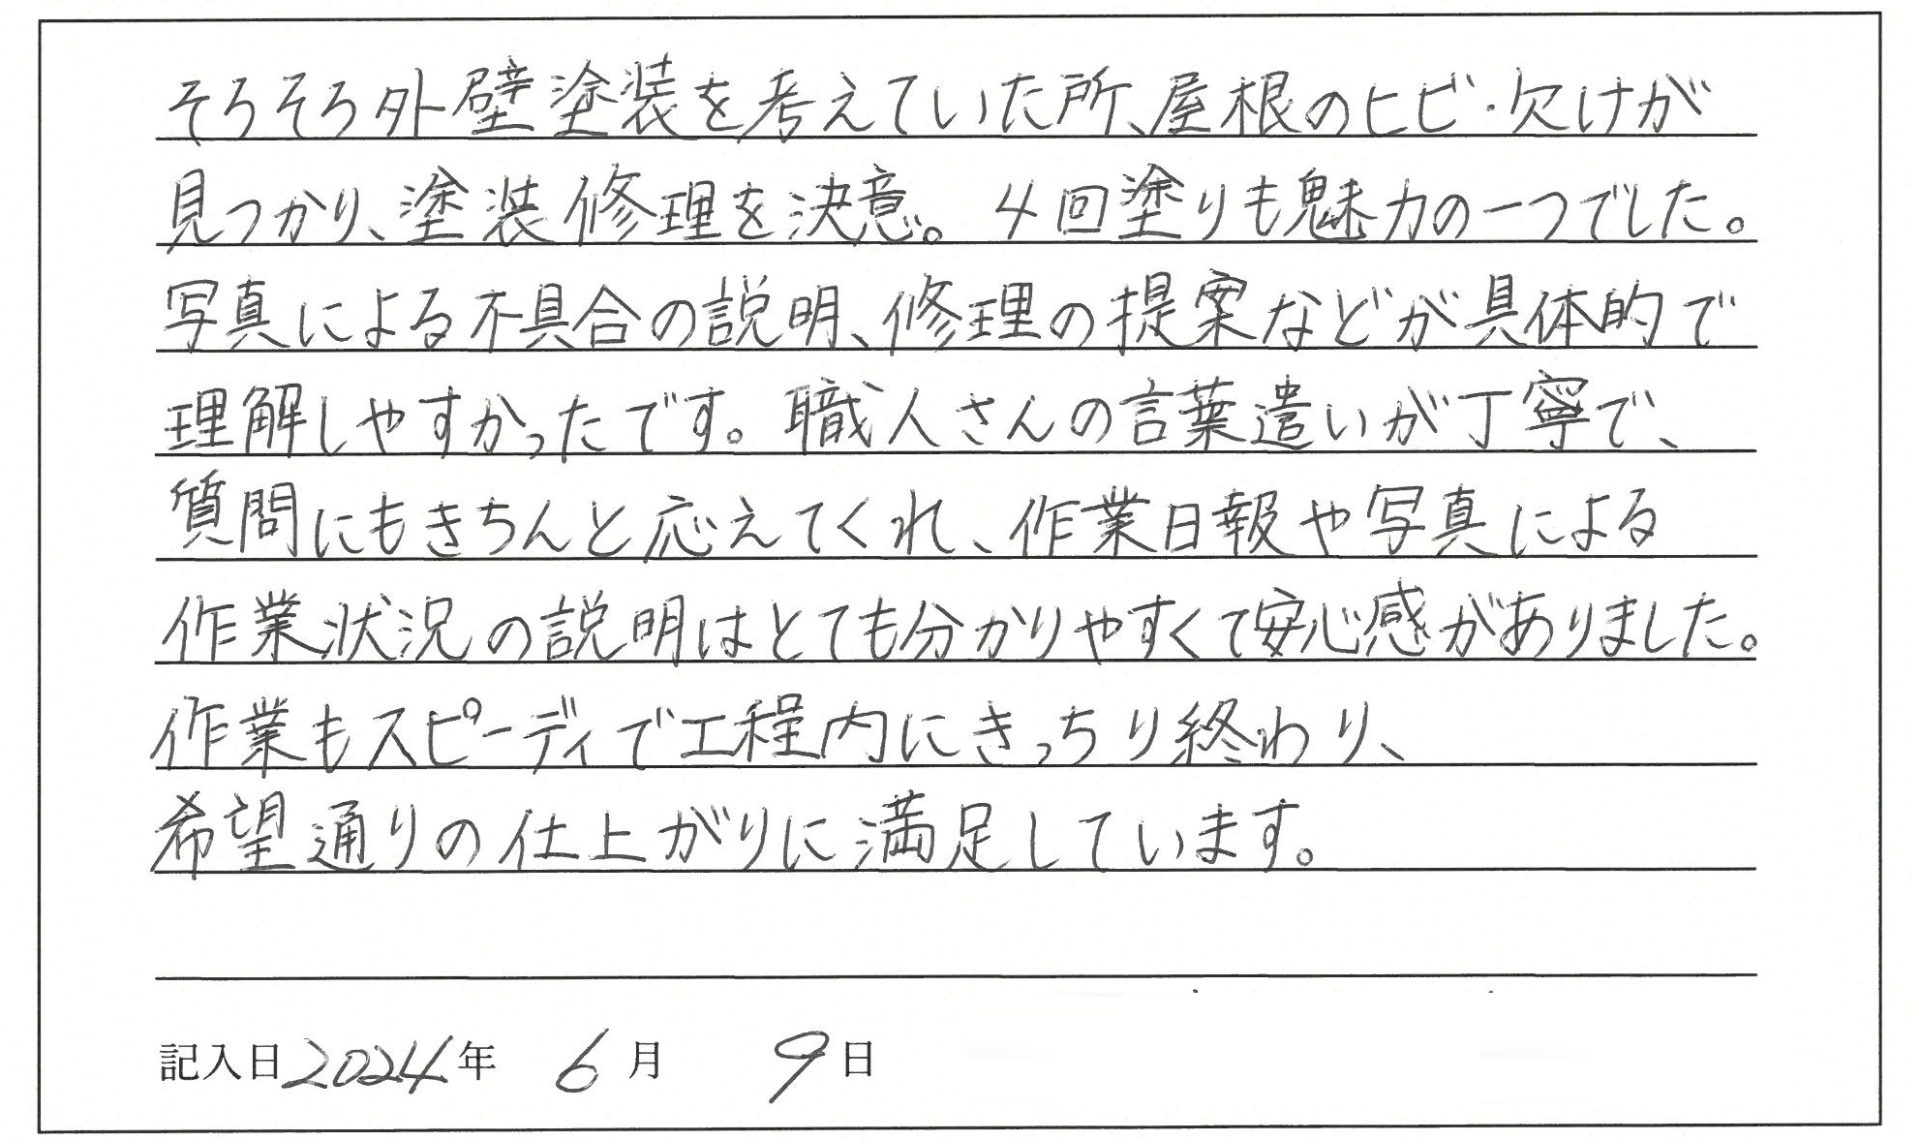 そろそろ外壁塗装を考えていた所、屋根のヒビ・欠けが
見つかり、塗装修理を決意。4回塗りも魅力の一つでした。
写真による不具合の説明、修理の提案などが具体的で
理解しやすかったです。職人さんの言葉遣いが丁寧で、
質問にもきちんと応えてくれ、作業日報や写真による
作業状況の説明はとても分かりやすくて安心感がありました。
作業もスピーディで工程内にきっちり終わり、
希望通りの仕上がりに満足しています。
記入日2024年 6月 9日